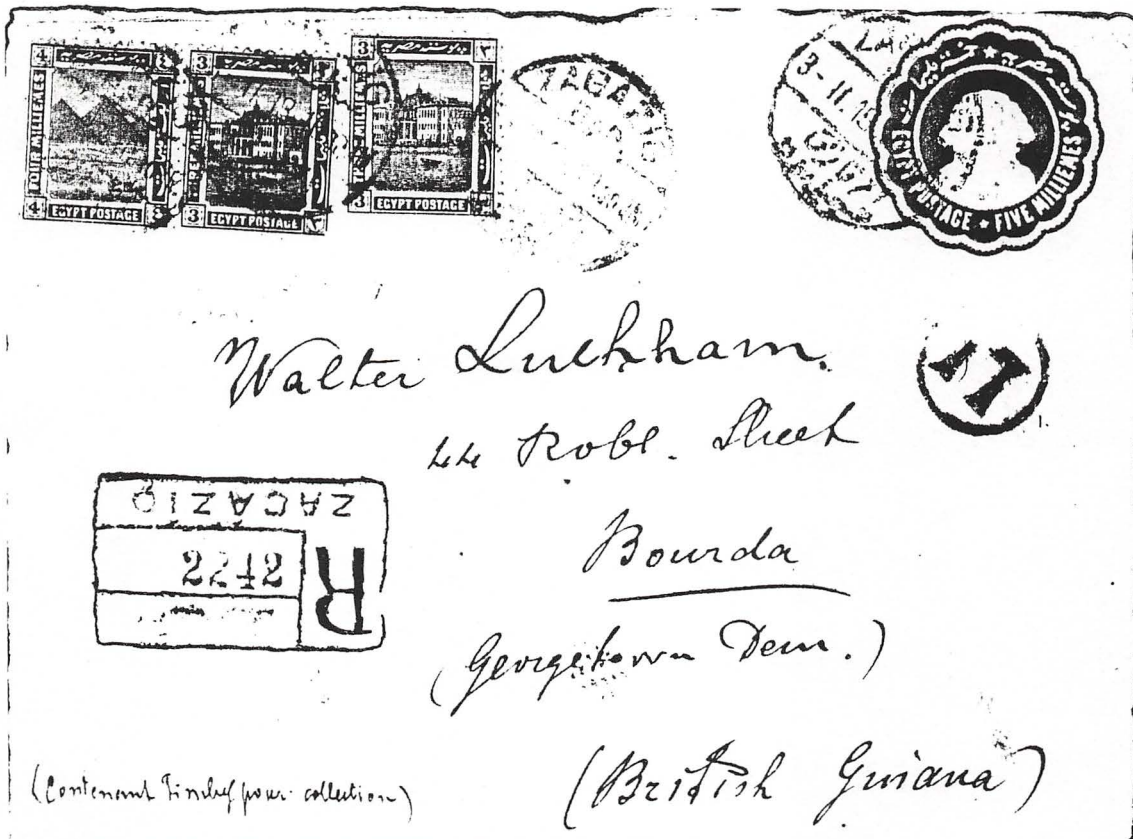 4 4
FOUR MILLIEMES
4 EGYPT POSTAGE
3
3 EGYPT POSTAGE
3
3 EGYPT POSTAGE
ZAGAZIG
3-II.
EGYPT POSTAGE ★ FIVE MILLIEMES
T
Walter Luckham.
44 Robb. Street
Bourda
(Georgetown Dem.)
(British Guiana)
ZAGAZIG
R
(Contenant Timbres pour collection)